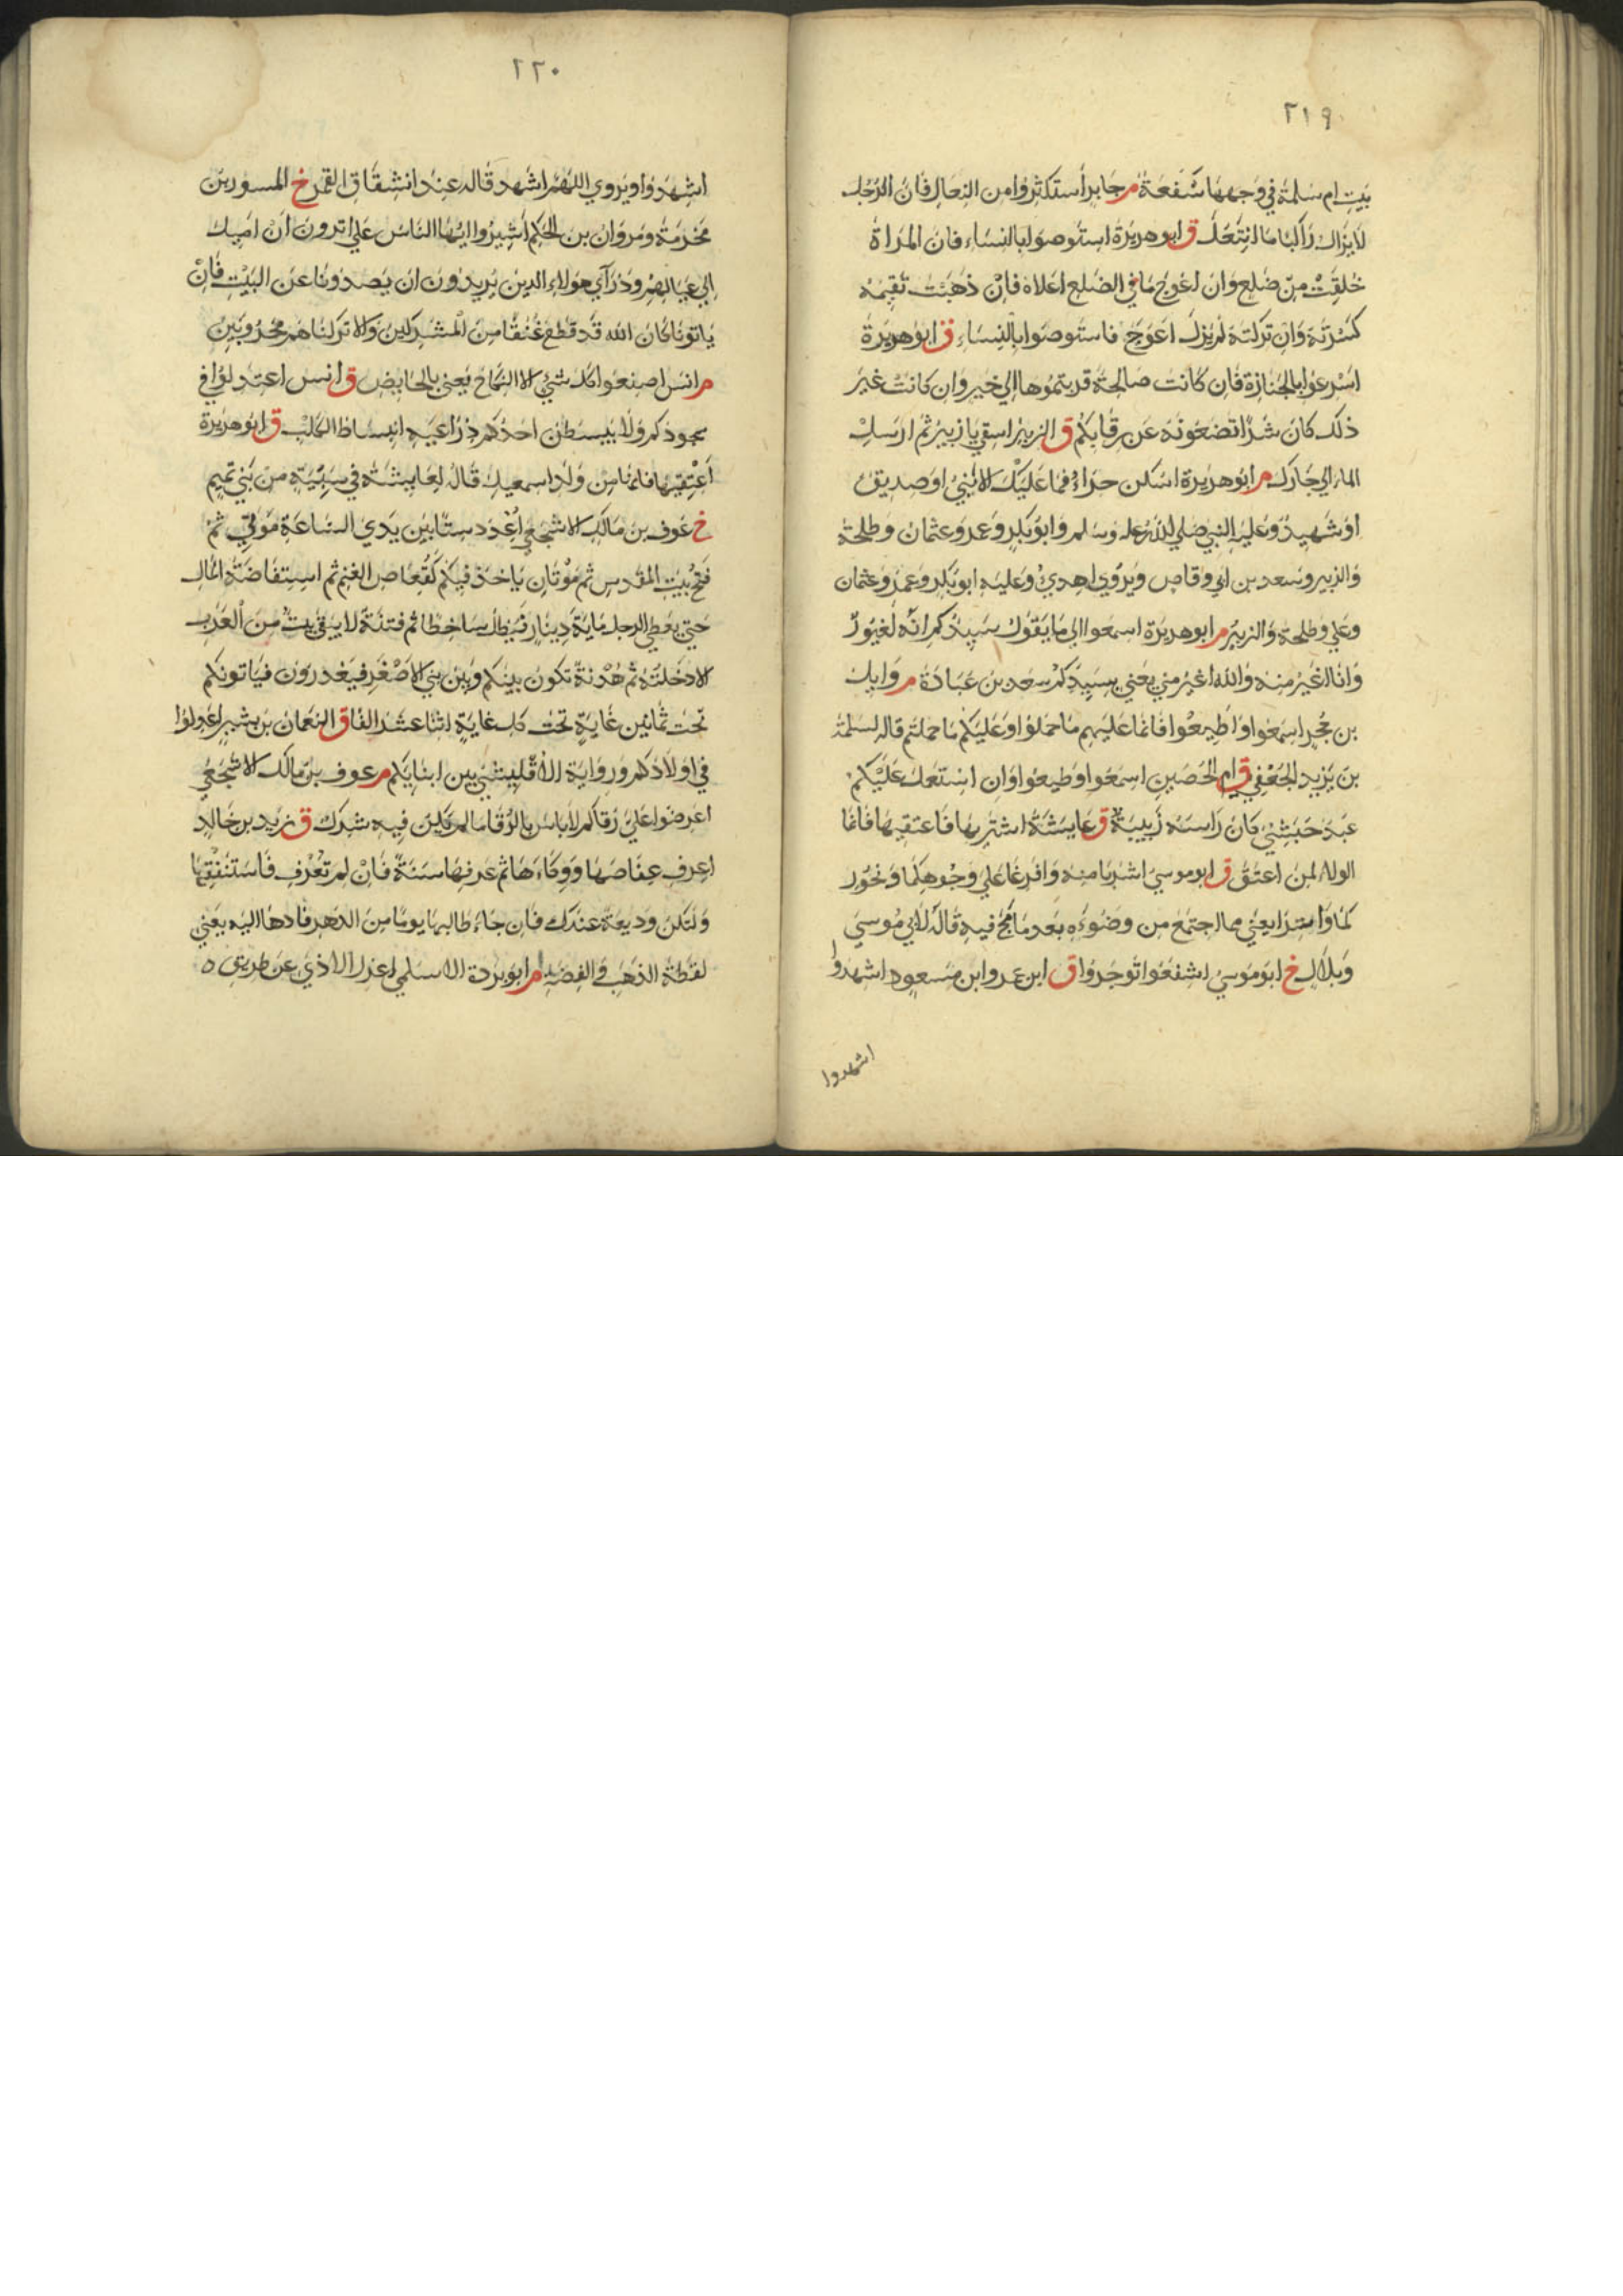 ٢١٩
بيت ام سلمة في وجهها سفعة م جابر استكثروا من النعال فان الرجل
لا يزال راكبا ما انتعل ق ابو هريرة استوصوا بالنساء فان المراة
خلقت من ضلع وان اعوج ما في الضلع اعلاه فان ذهبت تقيمه
كسرته وان تركته لم يزل اعوج فاستوصوا بالنساء ق ابو هريرة
اسرعوا بالجنازة فان كانت صالحة قربتموها الي خير وان كانت غير
ذلك كان شرا تضعونه عن رقابكم ق الزبير اسق يا زبير ثم ارسل
الماء الي جارك م ابو هريرة اسكن حراء فما عليك الا نبي او صديق
او شهيد وعليه النبي صلي الله عليه وسلم وابو بكر وعمر وعثمان وطلحة
والزبير وسعد بن ابي وقاص ويروي اهدي وعليه ابو بكر وعمر وعثمان
وعلي وطلحة والزبير م ابو هريرة اسمعوا الي ما يقول سيدكم انه لغيور
وانا اغير منه والله اغير مني يعني بسيدكم سعد بن عبادة م وايل
بن حجر اسمعوا واطيعوا فانما عليهم ما حملوا وعليكم ما حملتم قاله لسلمة
بن يزيد الجعفي ق ام الحصين اسمعوا وطيعوا وان استعمل عليكم
عبد حبشي كان راسه زبيبة ق عايشة اشتريها فاعتقيها فانما
الولاء لمن اعتق ق ابو موسي اشربا منه وافرغا علي وجوهكما ونحور
كما وابشرا يعني مما اجتمع من وضوءه بعد ما مج فيه قاله لابي موسي
وبلال خ ابو موسي اشفعوا توجروا ق ابن عمر وابن مسعود اشهدوا
اشهدوا
٢٢٠
اشهدوا ويروي اللهم اشهد قاله عند انشقاق القمر خ المسور بن
مخرمة ومروان بن الحكم اشيروا ايها الناس علي اترون ان اميل
الي عيالهم وذراري هولاء الذين يريدون ان يصدونا عن البيت فان
ياتونا كان الله قد قطع عنقا من المشركين والا تركناهم محروبين
م انس اصنعوا كل شئ الا النكاح يعني بالحايض ق انس اعتدلوا في
سجودكم ولا يبسطن احدكم ذراعيه انبساط الكلب ق ابو هريرة
اعتقيها فانها من ولد اسمعيل قال لعايشة في سبية من بني تميم
خ عوف بن مالك الاشجعي اعدد ستا بين يدي الساعة موتي ثم
فتح بيت المقدس ثم موتان ياخذ فيكم كقعاص الغنم ثم استفاضة المال
حتي يعطي الرجل ماية دينار فيظل ساخطا ثم فتنة لا يبقي بيت من العرب
الا دخلته ثم هدنة تكون بينكم وبين بني الاصغر فيغدرون فياتونكم
تحت ثمانين غاية تحت كل غاية اثنا عشر الفا ق النعمان بن بشير اعدلوا
في اولادكم ورواية الاقليشي بين ابنايكم م عوف بن مالك الاشجعي
اعرضوا علي رقاكم لا باس بالرقا ما لم يكن فيه شرك ق زيد بن خالد
اعرف عفاصها ووكاءها ثم عرفها سنة فان لم تعرف فاستنفقها
ولتكن وديعة عندك فان جاء طالبها يوما من الدهر فادها اليه يعني
لقطة الذهب والفضة م ابو بردة الاسلمي اعزل الاذي عن طريق ه